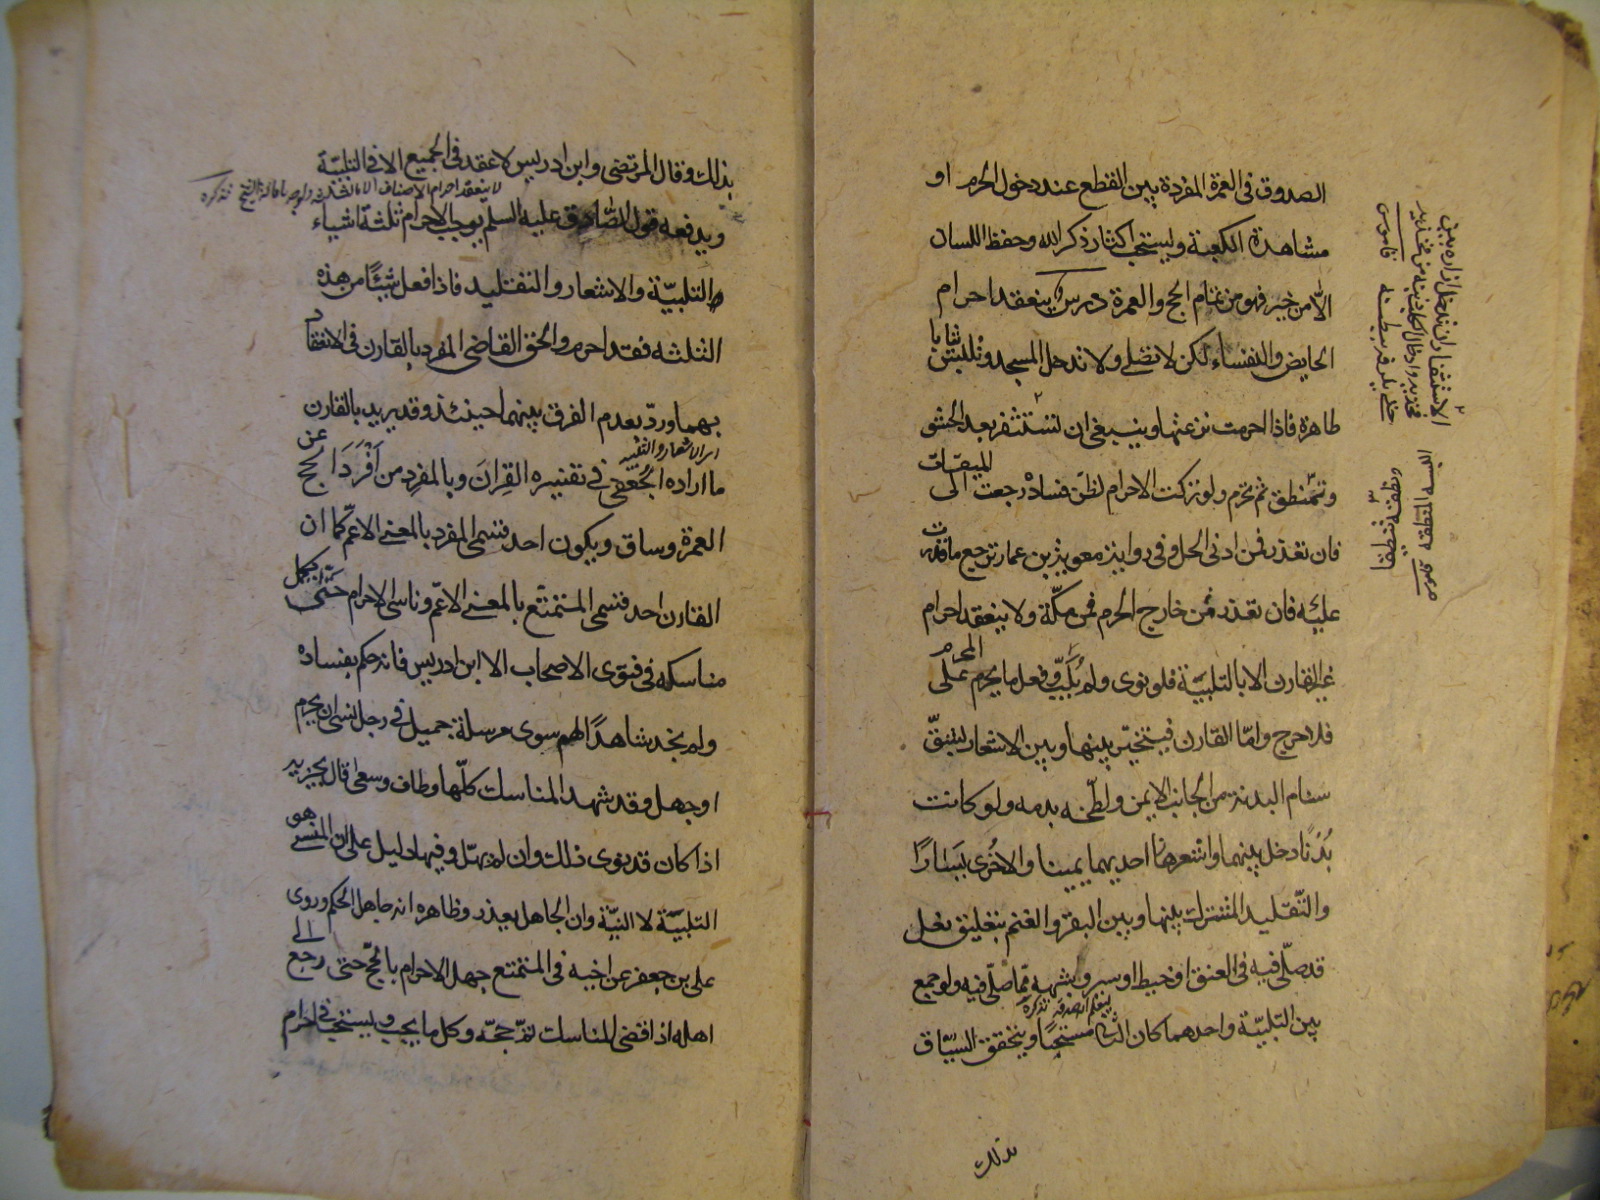 الصدوق في العمرة المفردة بين القطع عند دخول الحرم او
مشاهدة الكعبة ويستحب اكثار ذكر الله وحفظ اللسان
الّا من خير فهو من تمام الحج والعمرة درس ينعقد احرام
الحايض والنفساء لكن لا تصلي ولا تدخل المسجد وتلبس ثيابا
طاهرة فاذا احرمت نزعتها وينبغي ان تستثفر بعد الحشو
وتتمنطق ثم تحرم ولو تركت الاحرام لظن فساده رجعت الى الميقات
فان تعذر فمن ادنى الحل وفي رواية معوية بن عمار ترجع ما قدرت
عليه فان تعذر من خارج الحرم فمن مكّة ولا ينعقد احرام
غير القارن الا بالتلبيّة فلو نوى ولم يُلَبِّ وفعل ما يحرم على المحرم
فلا حرج وامّا القارن فيتخيّر بينها وبين الاشعار بشقّ
سنام البدنة من الجانب الايمن ولطخه بدمه ولو كانت
بُدْنًا دخل بينهما واشعرهما احديهما يمينا والاخرى يسارًا
والتّقليد المشترك بينها وبين البقر والغنم بتعليق نعل
قد صلّى فيه في العنق او خيط او سير وشبهه ممّا صلّى فيه ولو جمع
بين التلبيّة واحدهما كان الثاني مستحبًا ويتحقق السياق
بذلك
الاستثفار ان تدخل ازاره بين
فخذيه
قاموس
بذلك وقال المرتضى وابن ادريس لا عقد في الجميع الا في التلبيّة
لا ينعقد احرام الاصناف الا
تذكره
ويدفعه قول الصّادق عليه السلم يوجب الاحرام ثلثة اشياء
التلبيّة والاشعار والتقليد فاذا فعل شيئًا من هذه
الثلثه فقد احرم والحق القاضي المفرد بالقارن في الانعقاد
بهما وردّ بعدم الفرق بينهما حينئذ وقد يريد بالقارن
ما اراده الجُعفي في تفسيره القِرانَ وبالمفرِد من اَفْرَدَ الحج عن
العمرة وساق ويكون احد قسمى المفرد بالمعنى الاعمّ كما ان
القارن احد قسمى المتمتّع بالمعنى الاعمّ وناسى الاحرام حتى يكمل
مناسكه في فتوى الاصحاب الا ابن ادريس فانه حكم بفساده
ولم نجد شاهدًا لهم سوى مرسلة جميل في رجل نسى ان يحرم
او جهل وقد شهد المناسك كلّها وطاف وسعى قال يجزيه
اذا كان قد نوى ذلك وان لم يهلّ وفيها دليل على ان المنسي هو
التلبيّة لا النيّة وان الجاهل يعذر وظاهره انه جاهل الحكم وروى
على بن جعفر عن اخيه في المتمتع جهل الاحرام بالحجّ حتى رجع الى
اهله اذا قضى المناسك تمّ حجّه وكل ما يجب ويستحب في احرام